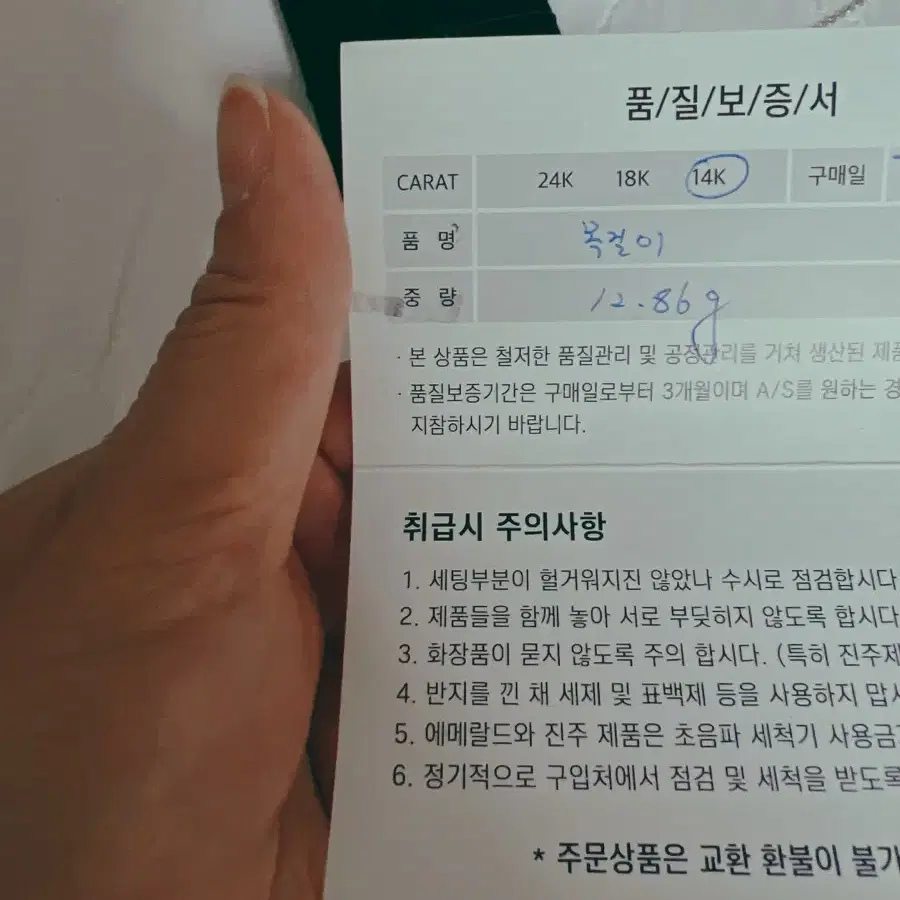 품/질/보/증/서
CARAT 24K 18K 14K 구매일
품 명 목걸이
중 량 12.86g
· 본 상품은 철저한 품질관리 및 공정관리를 거쳐 생산된 제품
· 품질보증기간은 구매일로부터 3개월이며 A/S를 원하는 경
지참하시기 바랍니다.
취급시 주의사항
1. 세팅부분이 헐거워지진 않았나 수시로 점검합시다
2. 제품들을 함께 놓아 서로 부딪히지 않도록 합시다
3. 화장품이 묻지 않도록 주의 합시다. (특히 진주제
4. 반지를 낀 채 세제 및 표백제 등을 사용하지 맙시
5. 에메랄드와 진주 제품은 초음파 세척기 사용금
6. 정기적으로 구입처에서 점검 및 세척을 받도록
* 주문상품은 교환 환불이 불가